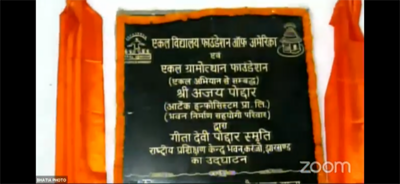 एकल विद्यालय फाउंडेशन ऑफ अमेरिका
एवं
एकल ग्रामोत्थान फाउंडेशन
(एकल अभियान से सम्बद्ध)
श्री अजय पोद्दार
(आर्टेक इन्फोसिस्टम प्रा. लि.)
(भवन निर्माण सहयोगी परिवार)
द्वारा
गीता देवी पोद्दार स्मृति
राष्ट्रीय प्रशिक्षण केन्द्र भवन, करंजो, झारखण्ड
का उद्घाटन
zoom